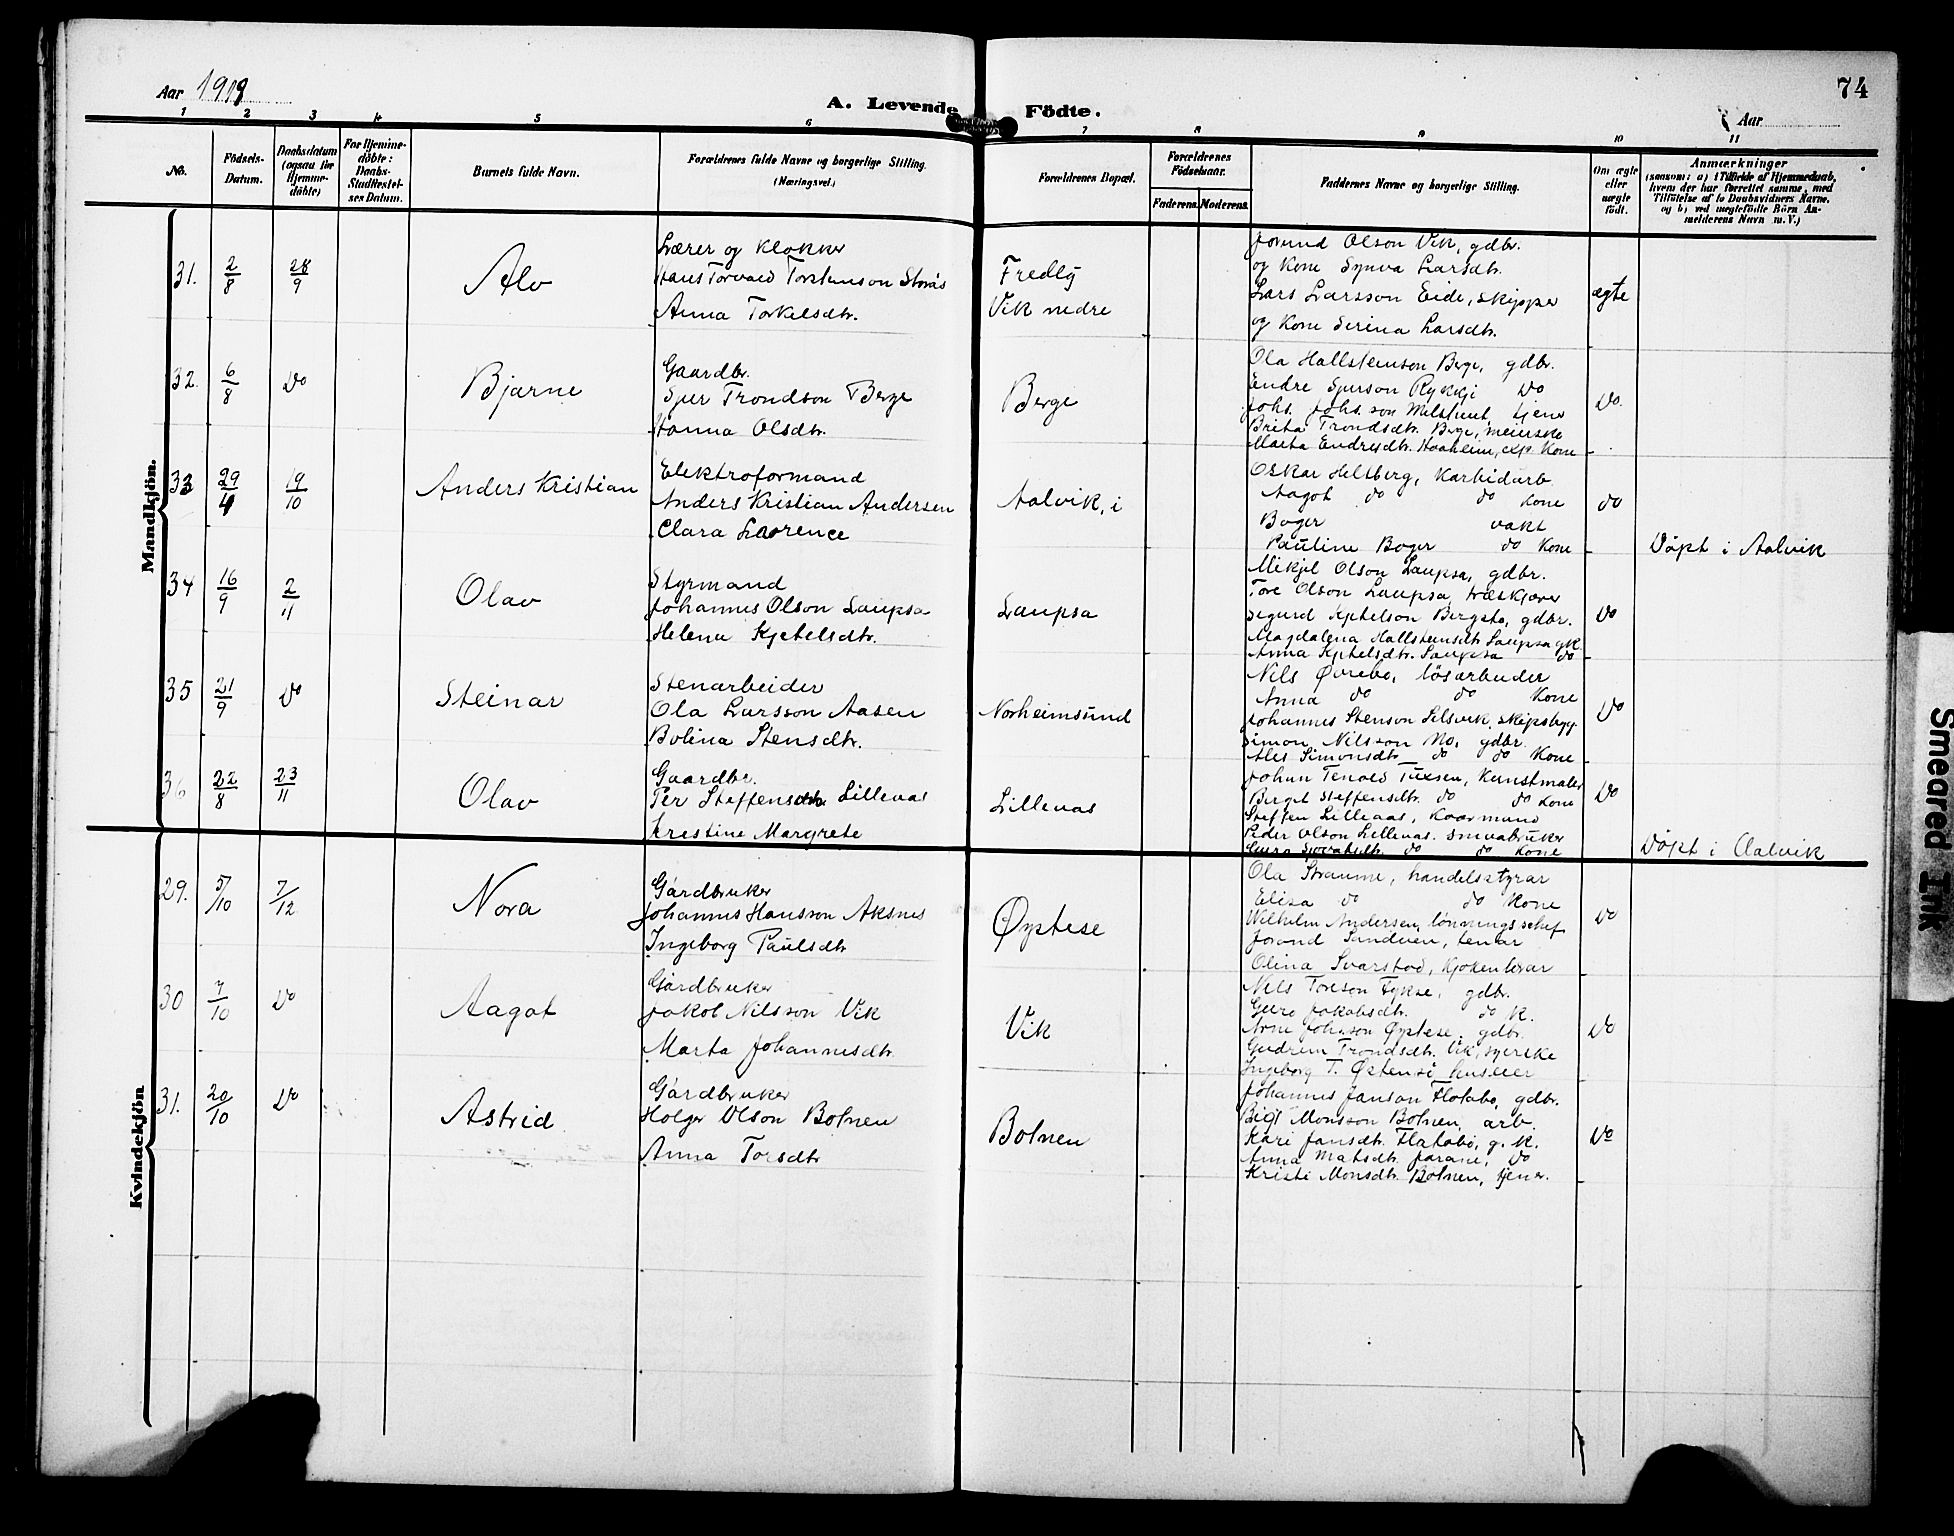 74
Aar 1919
A. Levende Födte.
Aar
1 2 3 4 5 6 7 8 9 10 11
No.
Födsels-Datum.
Daabsdatum (ogsaa for Hjemmedöbte)
For Hjemmedöbte: Daabs-Stadfestelses Datum.
Barnets fulde Navn.
Forældrenes fulde Navne og borgerlige Stilling. (Næringsvei.)
Forældrenes Bopæl.
Forældrenes Födselsaar.
Faderens. Moderens.
Faddernes Navne og borgerlige Stilling.
Om ægte eller uægte födt.
Anmærkninger
(saasom: a) i Tilfælde af Hjemmedaab,
hvem der har forrettet samme, med
Tilföielse af to Daabsvidners Navne.
og b) ved uægtefödte Börn An-
melderens Navn m. V.)
Mandkjön.
31. 2/8 28/9 Alv
Lærer og klokker
Hans Torvald Torstenson
Anna Torkelsdtr.
Fredly
Vik nedre
Jorund Olson Vik, gdbr.
og Kone Synva Larsdtr.
Lars Larsson Eide, skipper
og Kone Serina Larsdtr.
ægte
32. 6/8 Do Bjarne
Gaardbr.
Sjur Trondson Berge
Hanna Olsdtr.
Berge
Ola Hallsteinson Berge, gdbr.
Endre Sjurson Rykkji Do
Johs. Johs.son tjener
Brita Trondsdtr. Berge, meierske
Marta Endresdtr. Haaheim, Kone
Do.
33 29/4 19/10 Anders Kristian
Elektroformand
Anders Kristian Andersen
Clara Lawrence
Aalvik, i
Oskar Helsberg, Karbidarb.
Aagot do do Kone
Boger vakt
Pauline Boger do Kone
do
Döpt i Aalvik
34 16/9 2/11 Olav
Styrmand
Johannes Olson Laupsa
Helena Kjetelsdtr.
Laupsa
Mikjel Olson Laupsa, gdbr.
Tore Olson Laupsa, træskjærer
Sigurd Kjetelson Bergstø, gdbr.
Magdalena Hallsteinsdtr Laupsa gk.
Anna Kjetelsdtr. Laupsa do
Do
35 21/9 Do Steinar
Stenarbeider
Ola Larsson Aasen
Bolina Stensdtr.
Norheimsund
Nils Øvrebø, lösarbeider
Anna do do Kone
Johannes Stenson Selsvik, skipsbygg.
Simon Nilsson Mo, gdbr.
Alis Simonsdtr do do Kone
Do
36 22/8 23/11 Olav
Gaardbr.
Per Lilleaas
Kristine Margrete
Lilleaas
Johan Tenold Tuxsen, Kunstmaler
Berget Steffensdtr. do do Kone
Steffen Lilleaas,
Peder Olson Lilleaas. smaabruker
Guro do do Kone
Do
Döpt i Aalvik
Kvindekjön
29. 5/10 7/12 Nora
Gårdbruker
Johannes Hansson Aksnes
Ingeborg Paulsdtr
Øystese
Ola Straume, handelsstyrar
Elisa do do Kone
Wilhelm Andersen, lönningschef
Jorand Sandven, tenar
Olina Svarstad,
Do
30 7/10 Do Aagot
Gårdbruker
Jakob Nilsson Vik
Marta Johannesdtr
Vik
Nils Toreson Fykse, gdbr.
Guro Jakobsdtr. do K.
Arne Johsson Øystese, gdbr.
Gudrun Trondsdtr. Vik, syerske
Ingeborg T. Øystese
Do
31. 20/10 Do Astrid
Gårdbruker
Holger Olson Botnen
Anna Torsdtr
Botnen
Johannes Janson Flotabø, gdbr.
Monsson Botnen, arb.
Kari Jansdtr. Flatabø, g. K.
Anna Matsdtr. do
Kristi Monsdtr. Botnen, tjener.
Do
Smeared Ink